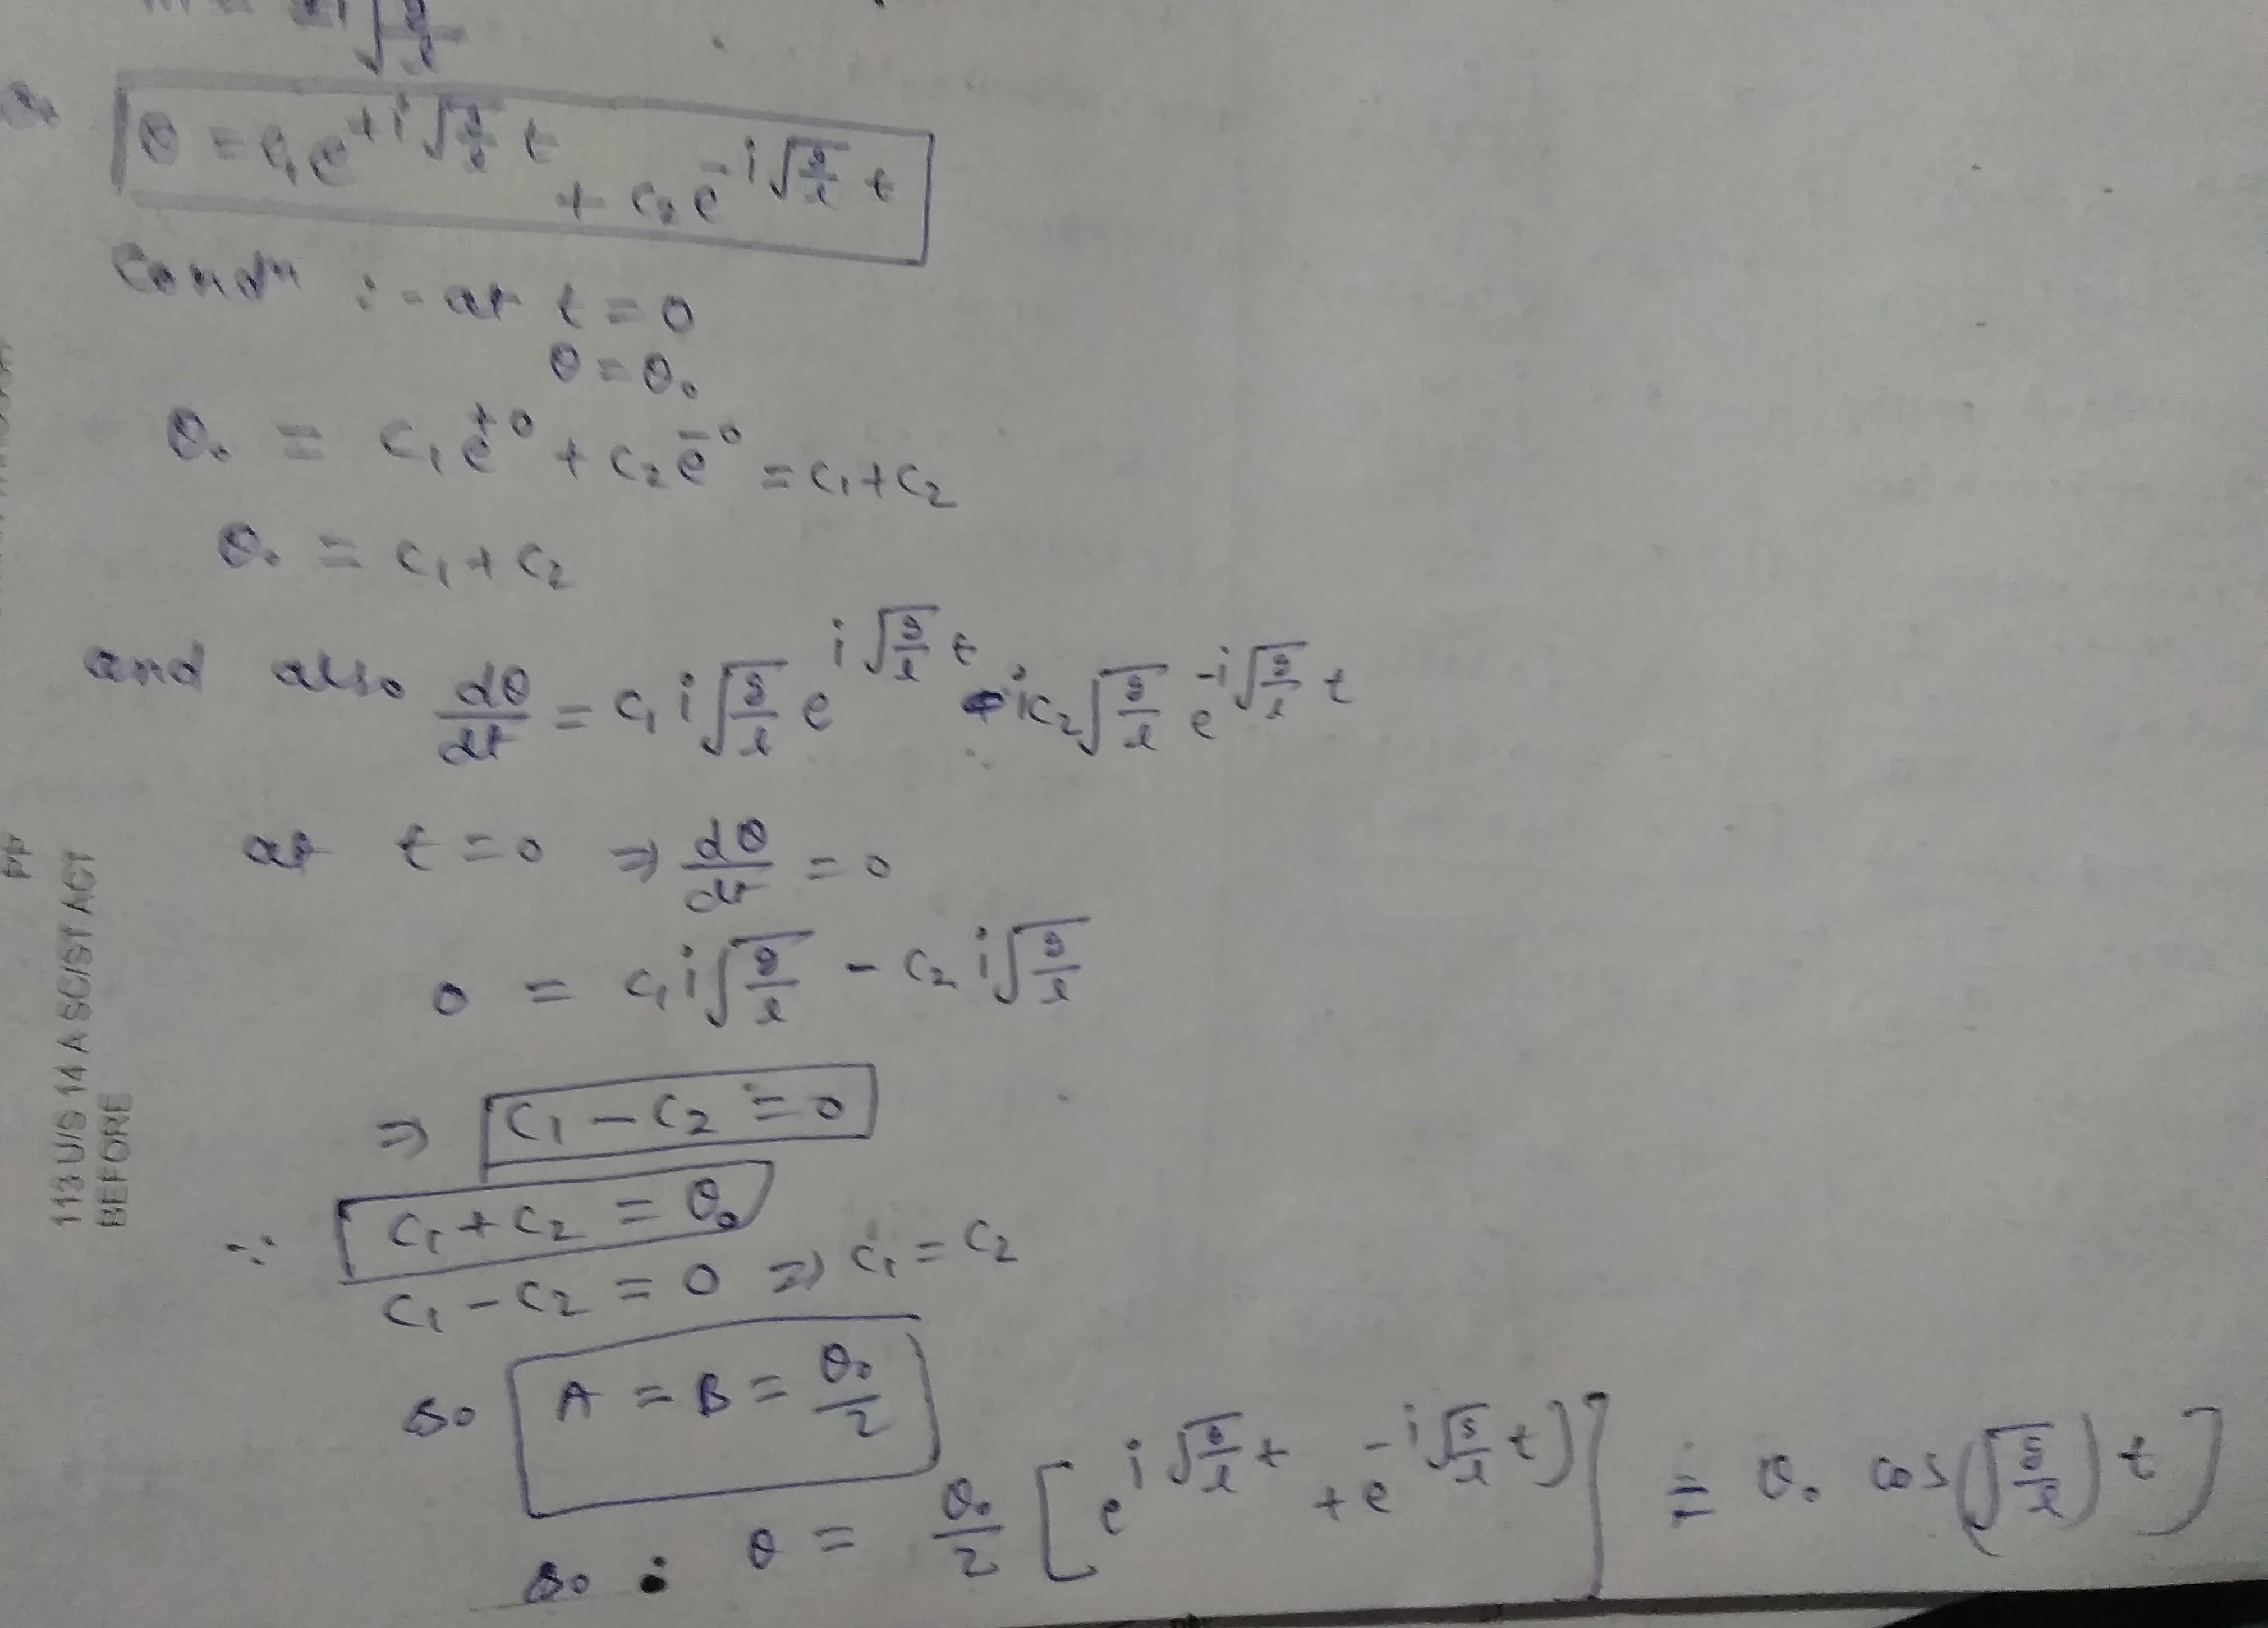 θ = c₁e^{+i√(g/l) t} + c₂e^{-i√(g/l) t}
Condⁿ :- at t = 0
θ = θ₀
θ₀ = c₁e^{+0} + c₂e^{-0} = c₁+c₂
θ₀ = c₁ + c₂
and also dθ/dt = c₁ i√(g/l) e^{i√(g/l) t} - ic₂√(g/l) e^{-i√(g/l) t}
at t = 0 ⇒ dθ/dt = 0
0 = c₁ i√(g/l) - c₂ i√(g/l)
⇒ c₁ - c₂ = 0
∵ c₁ + c₂ = θ₀
c₁ - c₂ = 0 ⇒ c₁ = c₂
so A = B = θ₀/2
so : θ = θ₀/2 [e^{i√(g/l) t} + e^{-i√(g/l) t)}] = θ₀ cos(√(g/l)) t]
113 U/S 14 A SC/ST ACT
BEFORE